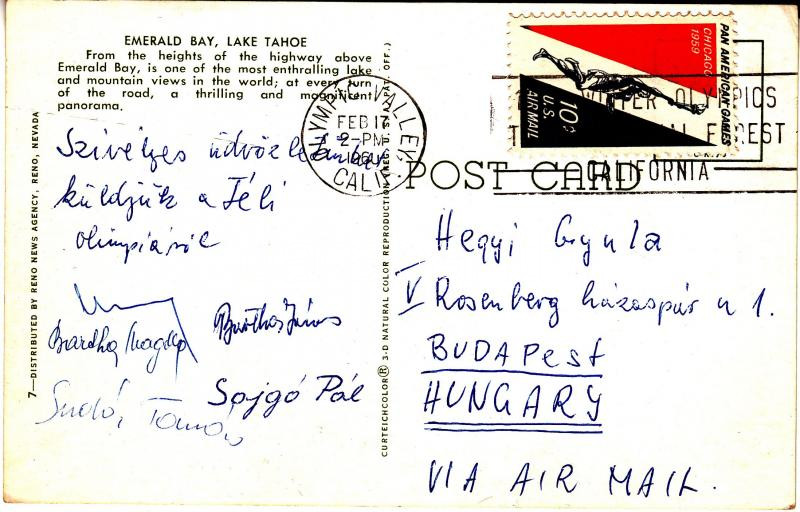 EMERALD BAY, LAKE TAHOE
From the heights of the highway above
Emerald Bay, is one of the most enthralling lake
and mountain views in the world; at every turn
of the road, a thrilling and magnificent
panorama.
Szívélyes üdvözletünket
küldjük a Téli
olimpiáról
Bartha János
Sajgó Pál
Tamás
7—DISTRIBUTED BY RENO NEWS AGENCY, RENO, NEVADA
CURTEICHCOLOR® 3-D NATURAL COLOR REPRODUCTION (REG. U. S. A. PAT. OFF.)
OLYMPIC VALLEY
FEB 1
2-PM
CALIF.
PAN AMERICAN GAMES
CHICAGO
1959
10¢
U.S.
AIR MAIL
WINTER OLYMPICS
FOREST
CALIFORNIA
POST CARD
Hegyi Gyula
V Rosenberg házaspár u 1.
BUDAPest
HUNGARY
VIA AIR MAIL.